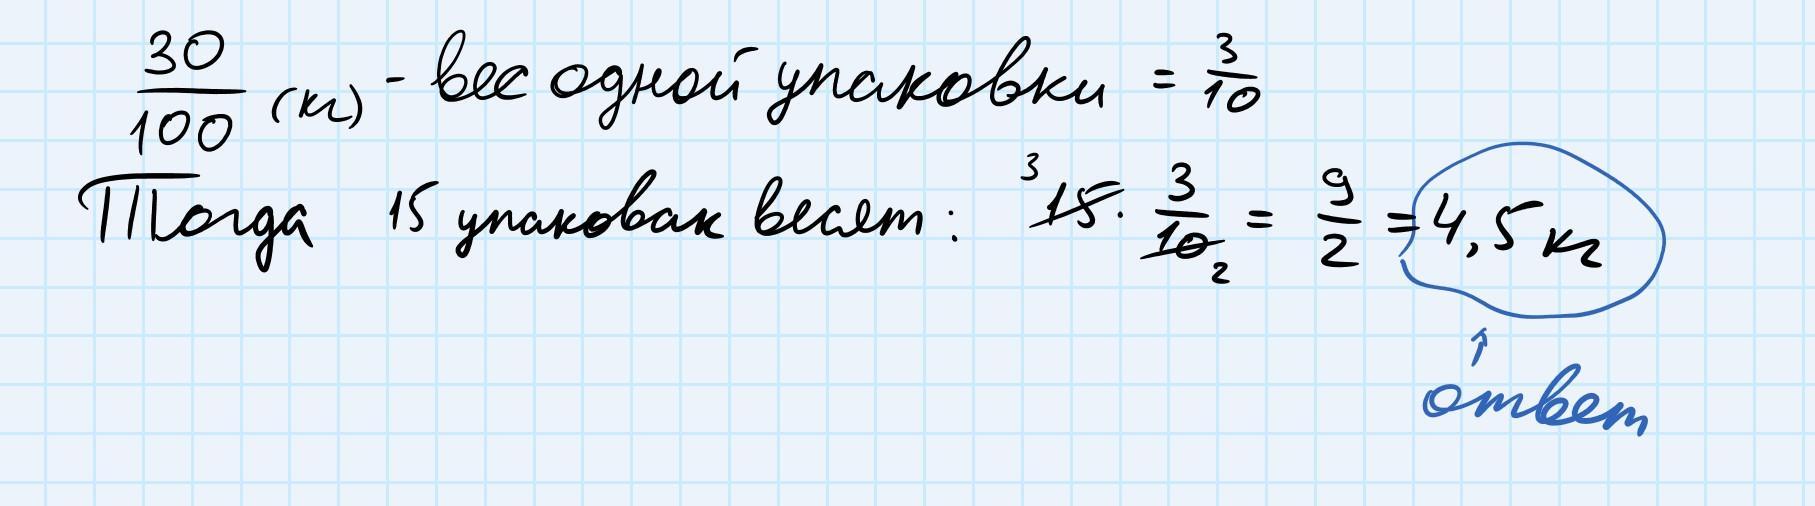 30/100 (кг) - вес одной упаковки = 3/10
Тогда 15 упаковок весят: ³15 · 3/10₂ = 9/2 = 4,5 кг
↑
ответ